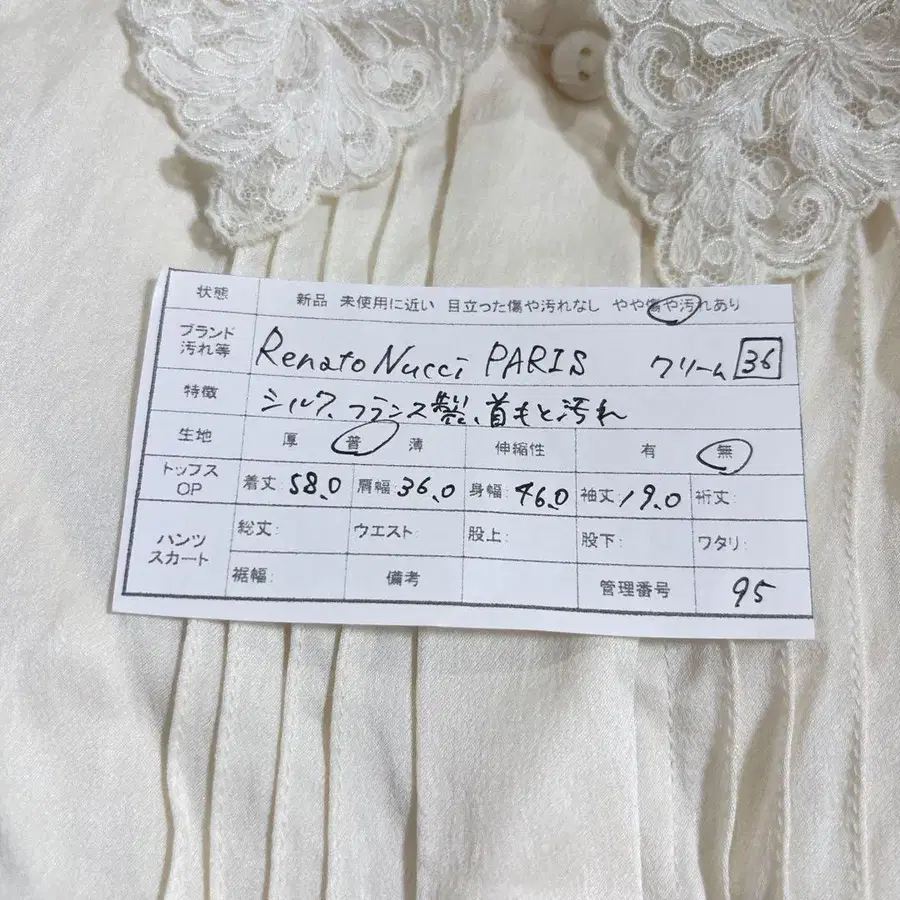 状態 新品 未使用に近い 目立った傷や汚れなし やや傷や汚れあり
ブランド 汚れ等 Renato Nucci PARIS クリーム 36
特徴 シルク、フランス製、首もと汚れ
生地 厚 普 薄 伸縮性 有 無
トップス OP 着丈 58.0 肩幅: 36.0 身幅: 46.0 袖丈 19.0 裄丈:
ハンツ スカート 総丈: ウエスト: 股上: 股下: ワタリ:
裾幅: 備考 管理番号 95